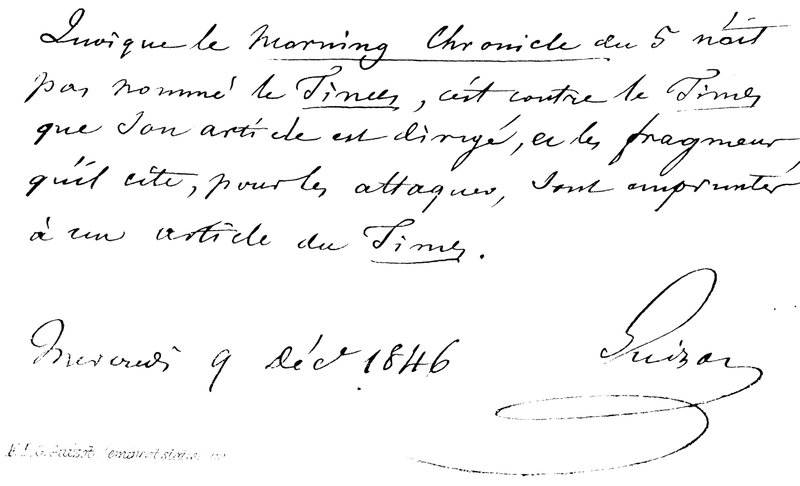 Quoique le Morning Chronicle du 5 n'ait
pas nommé le Times, c'est contre le Times
que son article est dirigé, et les fragmens
qu'il cite, pour les attaquer, sont empruntés
à un article du Times.
Mercredi 9 Déc 1846
Guizot
F. P. G. Guizot, eminent states